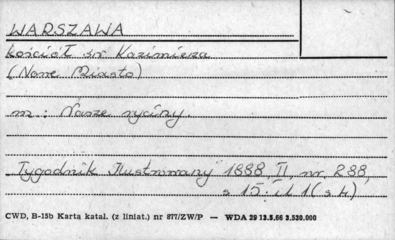 WARSZAWA
kościół św Kazimierza
(Nowe Miasto)
m: Nasze ryciny.
Tygodnik Ilustrowany 1888, II, nr. 288,
s 15: il 1 (s 4)
CWD, B-15b Karta katal. (z liniat.) nr 877/ZW/P — WDA 29 13.5.66 3.530.000